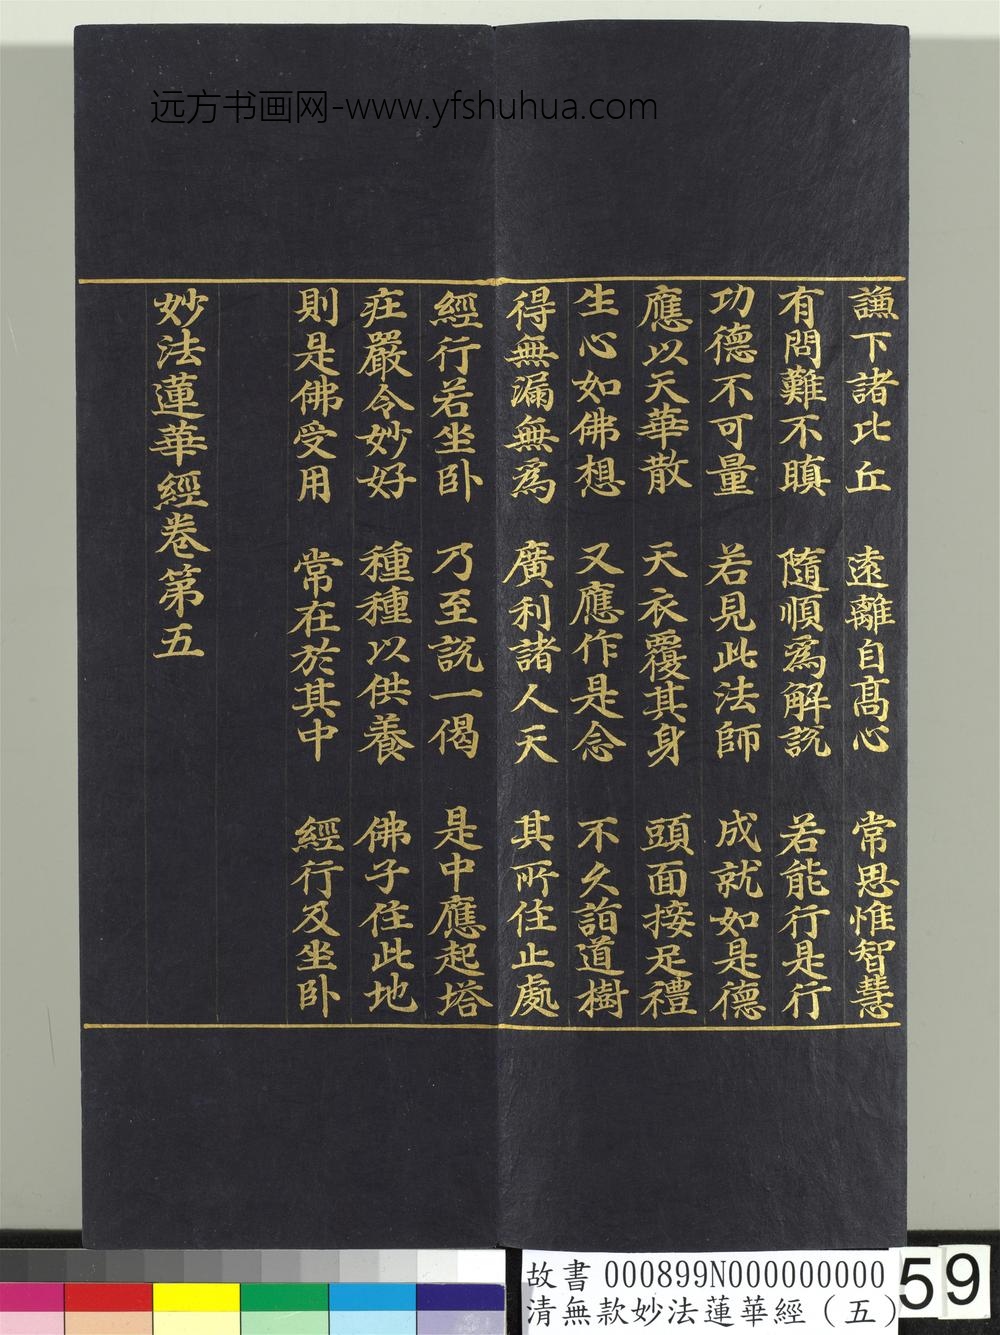 远方书画网-www.yfshuhua.com
謙下諸比丘 遠離自髙心 常思惟智慧
有問難不瞋 隨順為解説 若能行是行
功德不可量 若見此法師 成就如是德
應以天華散 天衣覆其身 頭面接足禮
生心如佛想 又應作是念 不久詣道樹
得無漏無為 廣利諸人天 其所住止處
經行若坐卧 乃至説一偈 是中應起塔
莊嚴令妙好 種種以供養 佛子住此地
則是佛受用 常在於其中 經行及坐卧
妙法蓮華經卷第五
故書 000899N000000000
清無款妙法蓮華經（五）
59